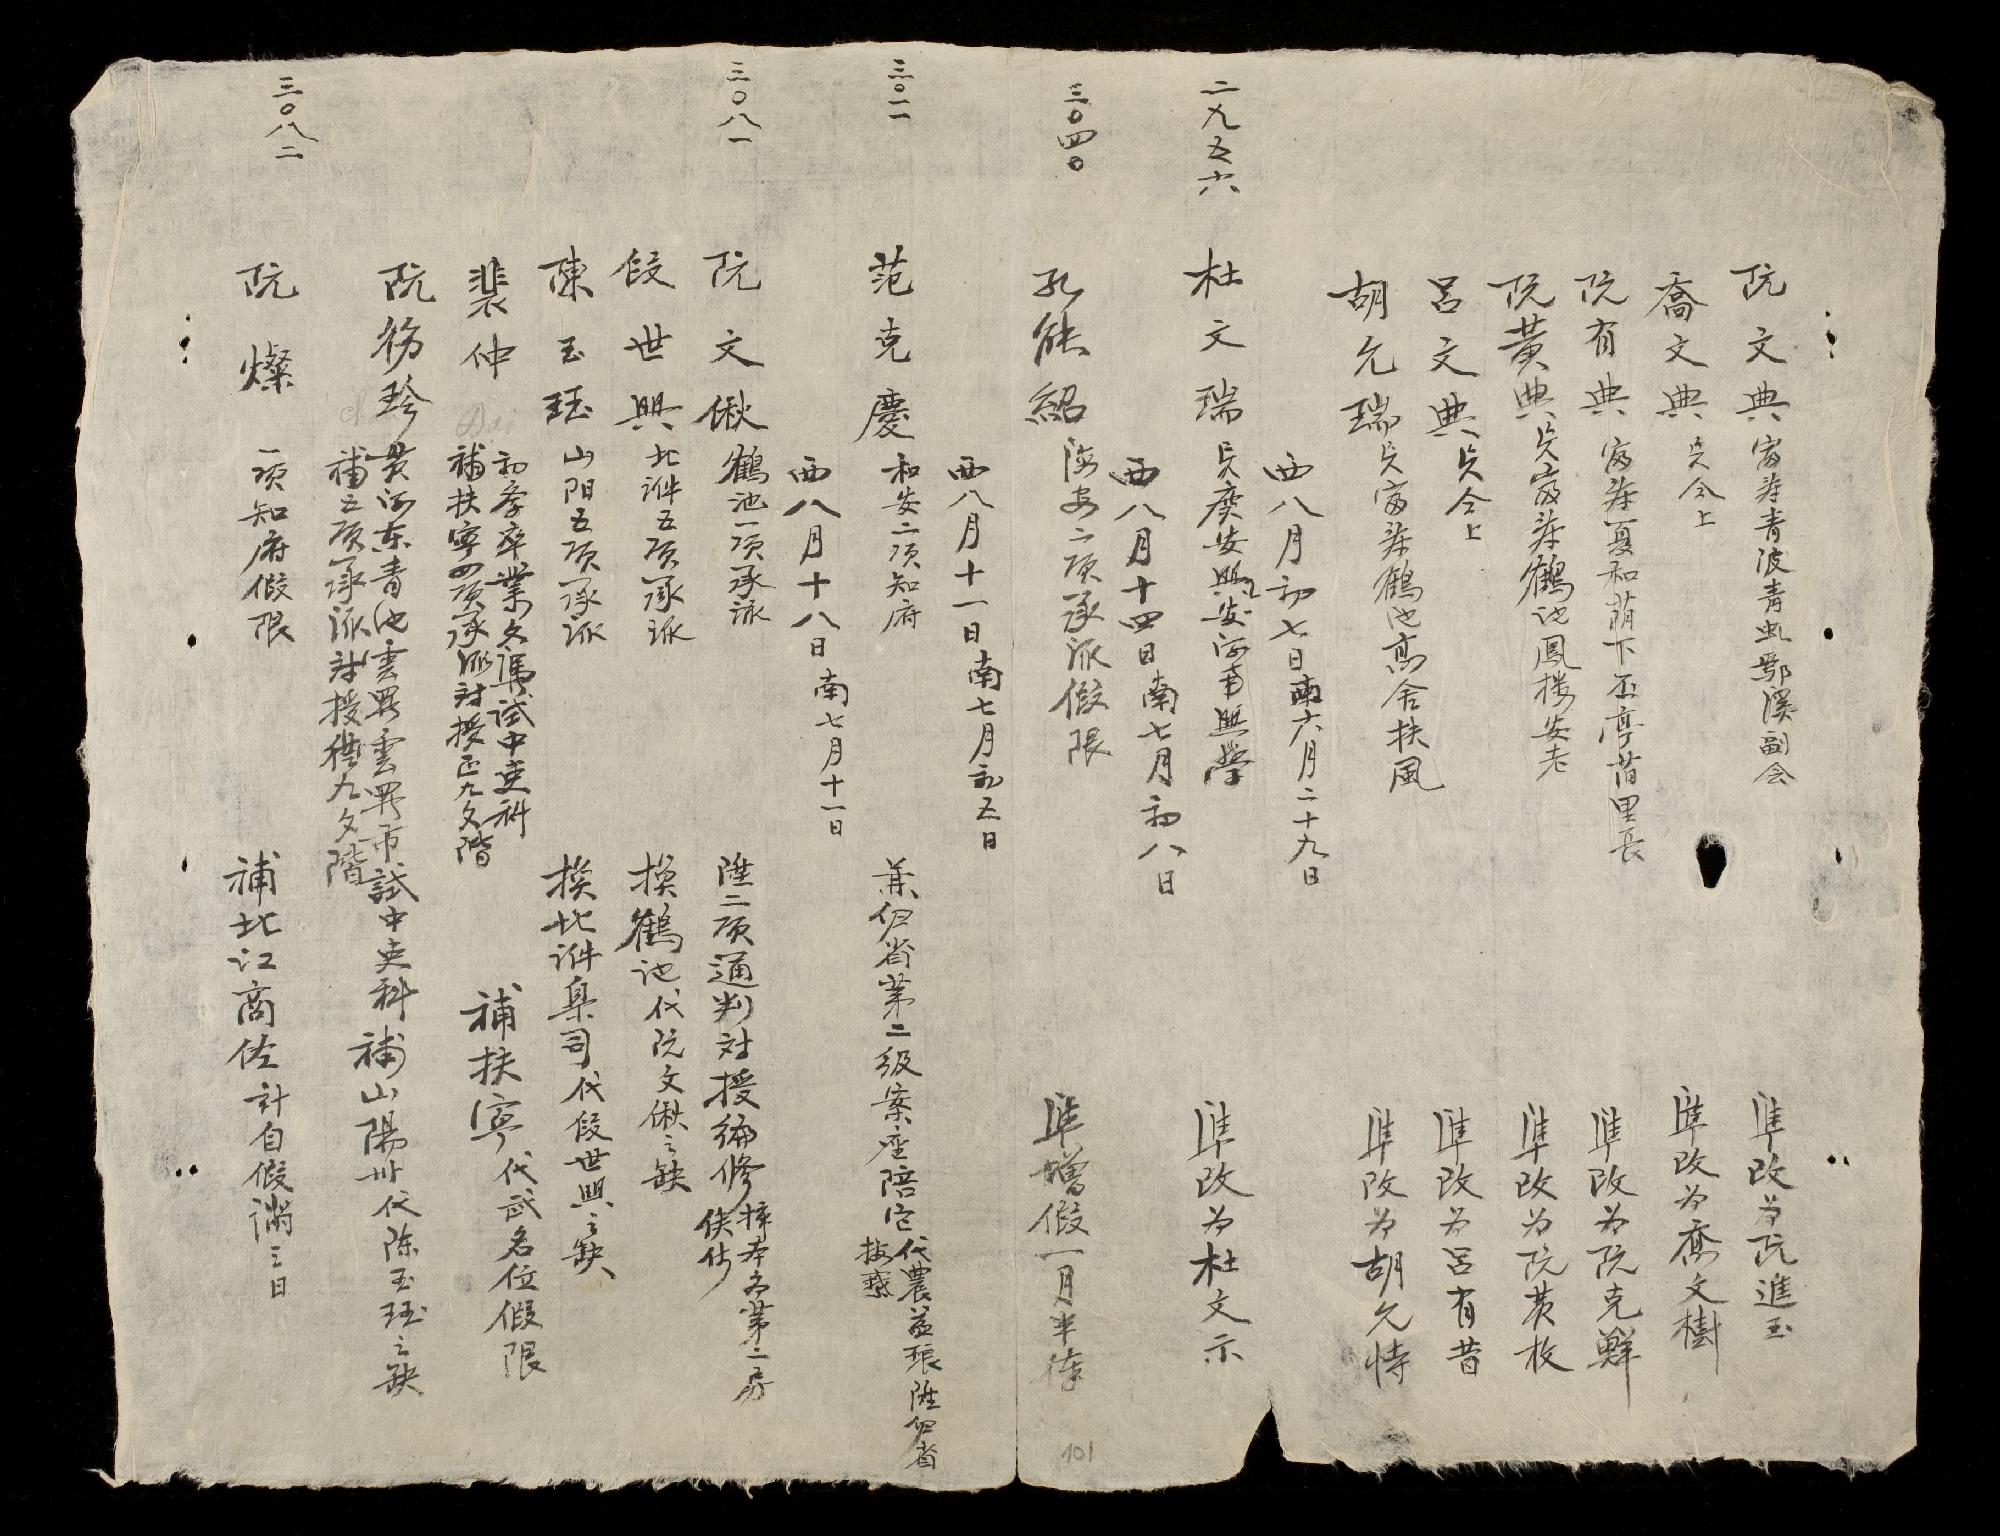 阮文典富壽青波青虬鄠溪副会 準改为阮進玉
喬文典貝仝上 準改为喬文樹
阮有典富壽夏和荫下丕亭莆里長 準改为阮克鮮
阮黄典貝富壽鶴池鳳楼安老 準改为阮黄枚
呂文典貝仝上 準改为呂有昔
胡允瑞貝富壽鶴池高舍扶風 準改为胡允恃
西八月初七日南六月二十九日
二九五六 杜文瑞貝廣安興安河南興學 準改为杜文示
西八月十四日南七月初八日
三〇四〇 孔能紹海安二項承派假限 準增假一月半俸
西八月十一日南七月初五日
三〇一一 范克慶和安二項知府 兼仍省第二級案座陪
代農益琅陞仍省
西八月十八日南七月十一日
三〇八一 阮文楸鶴池一項承派 陞二項通判対授編修
段世興北泎五項承派 換鶴池代阮文楸之缺
陳玉珏山阳五項承派 換北泎臬司代段世興之缺
裴仲 初孝卒業文憑試中吏科
補扶寧四項承派対授正九文階 補扶寧代武名位假限
阮務珍貫河东青池雲罗雲罗市試中吏科補山陽卅代陈玉珏之缺
補五項承派対授從九文階
三〇八二 阮燦 一項知府假限 補北江商佐計自假满三日
101